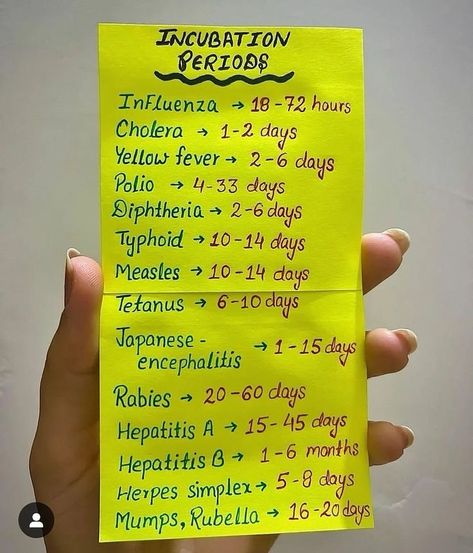 INCUBATION
PERIODS
Influenza → 18-72 hours
Cholera → 1-2 days
Yellow fever → 2-6 days
Polio → 4-33 days
Diphtheria → 2-6 days
Typhoid → 10-14 days
Measles → 10-14 days
Tetanus → 6-10 days
Japanese -
encephalitis → 1-15 days
Rabies → 20-60 days
Hepatitis A → 15-45 days
Hepatitis B → 1-6 months
Herpes simplex → 5-8 days
Mumps, Rubella → 16-20 days